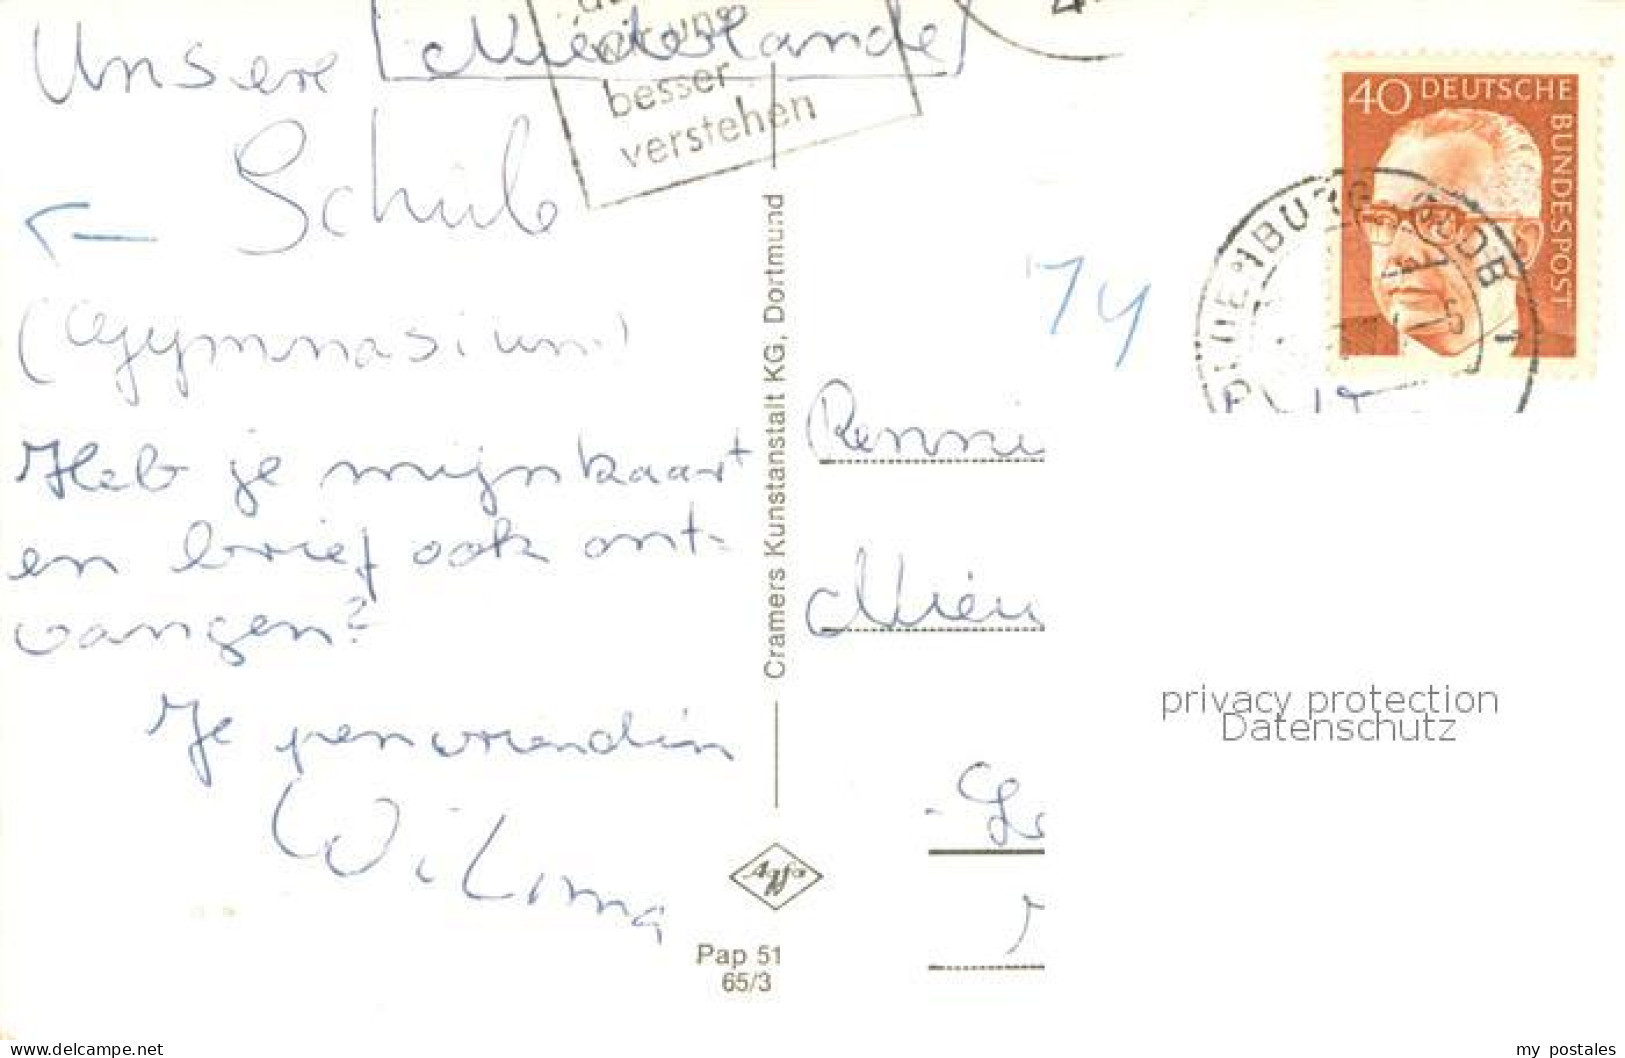 Unsere
Schule
(Gymnasium)
Heb je mijn kaart
en brief ook ont-
vangen?
Je penvriendin
Wilma
Niederlande
besser
verstehen
Cramers Kunstanstalt KG, Dortmund
Agfa
Pap 51
65/3
40 DEUTSCHE
BUNDESPOST
privacy protection
Datenschutz
www.delcampe.net
my_postales